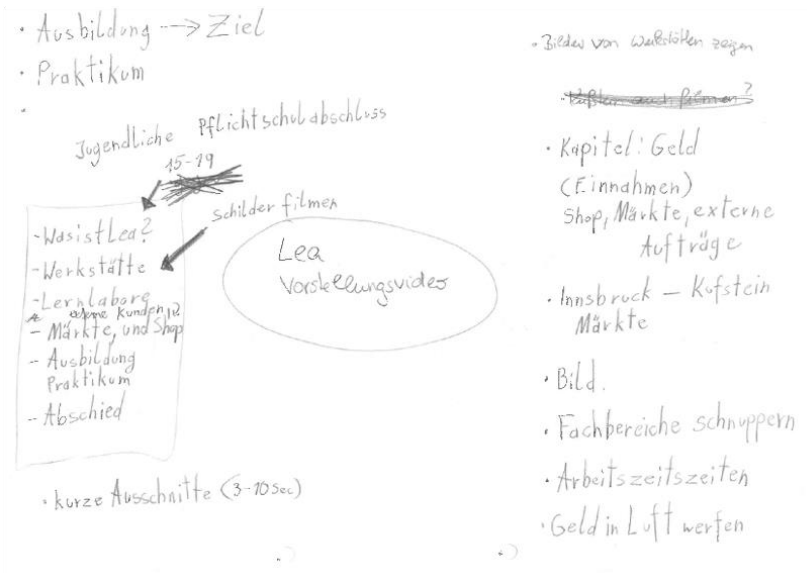 • Ausbildung --> Ziel
• Praktikum
•
Jugendliche Pflichtschulabschluss
15-19
- Was ist Lea?
- Werkstätte
- Lernlabore
externe Kunden
- Märkte, und Shop
- Ausbildung
Praktikum
- Abschied
Schilder filmen
• kurze Ausschnitte (3-10 sec)
Lea
Vorstellungsvideo
• Bilder von Werkstätten zeigen
• Kapitel: Geld
(Einnahmen)
Shop, Märkte, externe
Aufträge
• Innsbruck — Kufstein
Märkte
• Bild.
• Fachbereiche schnuppern
• Arbeitszeitszeiten
• Geld in Luft werfen